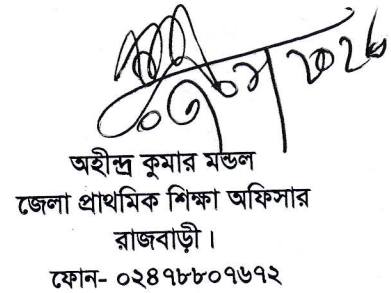 অহীন্দ্র কুমার মন্ডল
জেলা প্রাথমিক শিক্ষা অফিসার
রাজবাড়ী।
ফোন- ০২৪৭৮৮০৭৬৭২